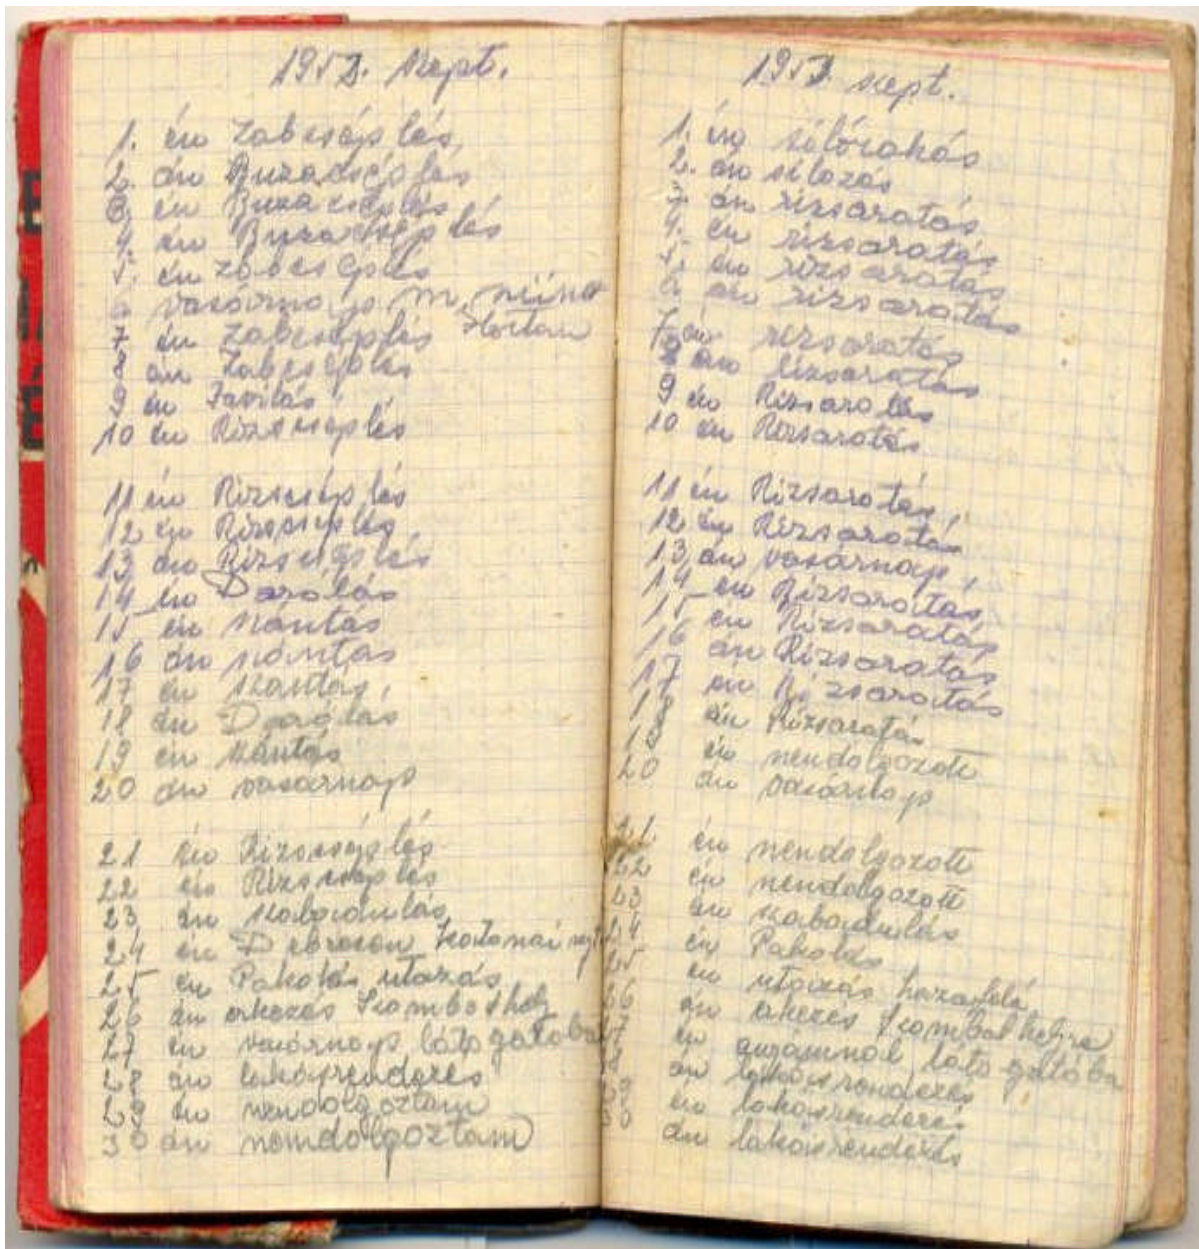 1953. szept.
1. én zabcséplés,
2. án Buzacséplés
3. én Buza cséplés
4. én Buzacséplés
5. én zabcséplés
6 vasárnap
7 én zabcséplés voltam
8 án Zabcséplés
9 én Javitás
10 én Rizscséplés
11 én Rizscséplés
12 én Rizscséplés
13 án Rizscséplés
14 én Darálás
15 én szántás
16 án szántás
17 én szántás,
18 án Darálás
19 én szántás
20 án vasárnap
21 én Rizscséplés
22 én Rizscséplés
23 án szabadulás
24 én Debrecen katonai
25 én Pakolás utazás
26 án érkezés Szombathely
27 én vasárnap látogatoba
28 án lakásrendezés
29 én nemdolgoztam
30 án nemdolgoztam
1953. szept.
1. én silórakás
2. án silozás
3 án rizsaratás
4. én rizsaratás
5. én rizsaratás
6 án rizsaratás
7 én rizsaratás
8 án rizsaratás
9 én Rizsaratás
10 én Rizsaratás
11 én Rizsaratás,
12 én Rizsaratás
13, án vasárnap,
14 én Rizsaratás,
15 én Rizsaratás
16 án Rizsaratás
17 én Rizsaratás
18 án Rizsaratás
19 én nendolgozott
20 án vasárnap
21. én nendolgozott
22 én nendolgozott
23 án szabadulás
24 én Pakolás
25 én utazás hazafelé
26 án érkezés Szombathelyre
27 én látogatóba
28 án lakásrendezés
29 én lakásrendezés
30 án lakásrendezés